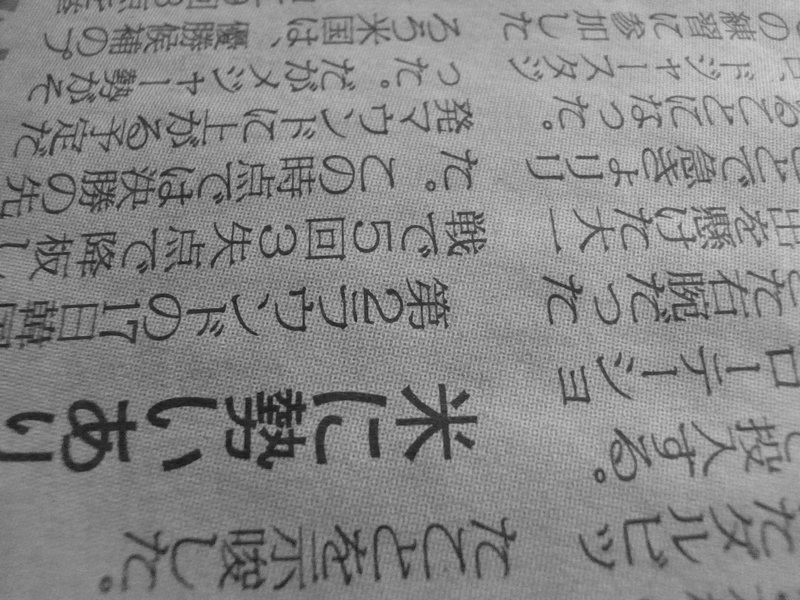 たダルビッ
し投入する。
ローテーショ
た右腕だった
出を懸けた大一
とで急きょリリ
ることになった。
日、ドジャースタジ
の練習に参加した
たことを示唆した。
米に勢いあり
第2ラウンドの17日韓国
戦で5回3失点で降板し
た。この時点では決勝の先
発マウンドに上がる予定だ
った。だがメジャー勢がそ
ろう米国は、優勝候補のプ